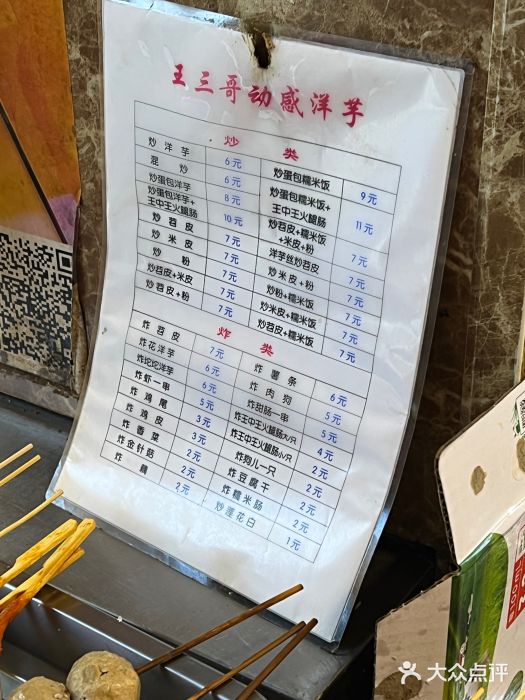 王三哥动感洋芋
炒类
炒洋芋 6元 炒蛋包糯米饭 9元
混炒 6元 炒蛋包糯米饭+
王中王火腿肠 11元
炒蛋包洋芋 8元 炒苕皮+糯米饭
+米皮+粉 7元
炒蛋包洋芋+
王中王火腿肠 10元 洋芋丝炒苕皮 7元
炒苕皮 7元 炒米皮+粉 7元
炒米皮 7元 炒粉+糯米饭 7元
炒粉 7元 炒米皮+糯米饭 7元
炒苕皮+米皮 7元 炒苕皮+糯米饭 7元
炒苕皮+粉 7元
炸类
炸苕皮 7元 炸薯条 6元
炸花洋芋 6元 炸肉狗 5元
炸坨坨洋芋 6元 炸甜肠一串 5元
炸虾一串 5元 炸王中王火腿肠大只 4元
炸鸡尾 3元 炸王中王火腿肠小只 2元
炸鸡皮 3元 炸狗儿一只 2元
炸香菜 2元 炸豆腐干 2元
炸金针菇 2元 炸糯米肠 2元
炸藕 2元 炒莲花白 1元
大众点评